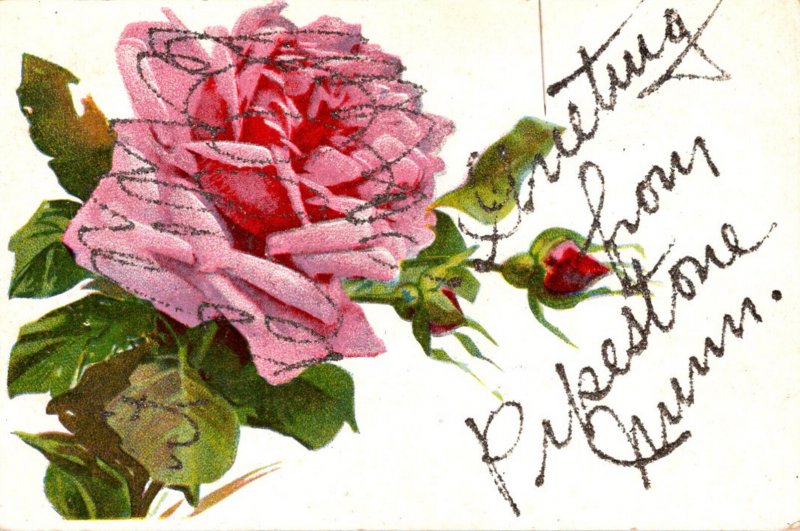 Greeting
from
Pipestone
Minn.